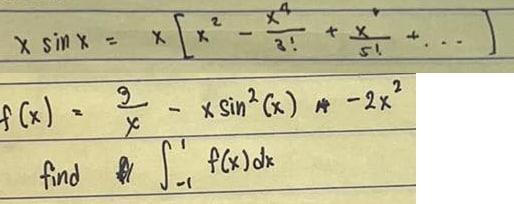 x sin x = x [ x² - x⁴/3! + x/5! + . . . ]
f(x) = 9/x - x sin²(x) - 2x²
find ∫₋₁¹ f(x) dx